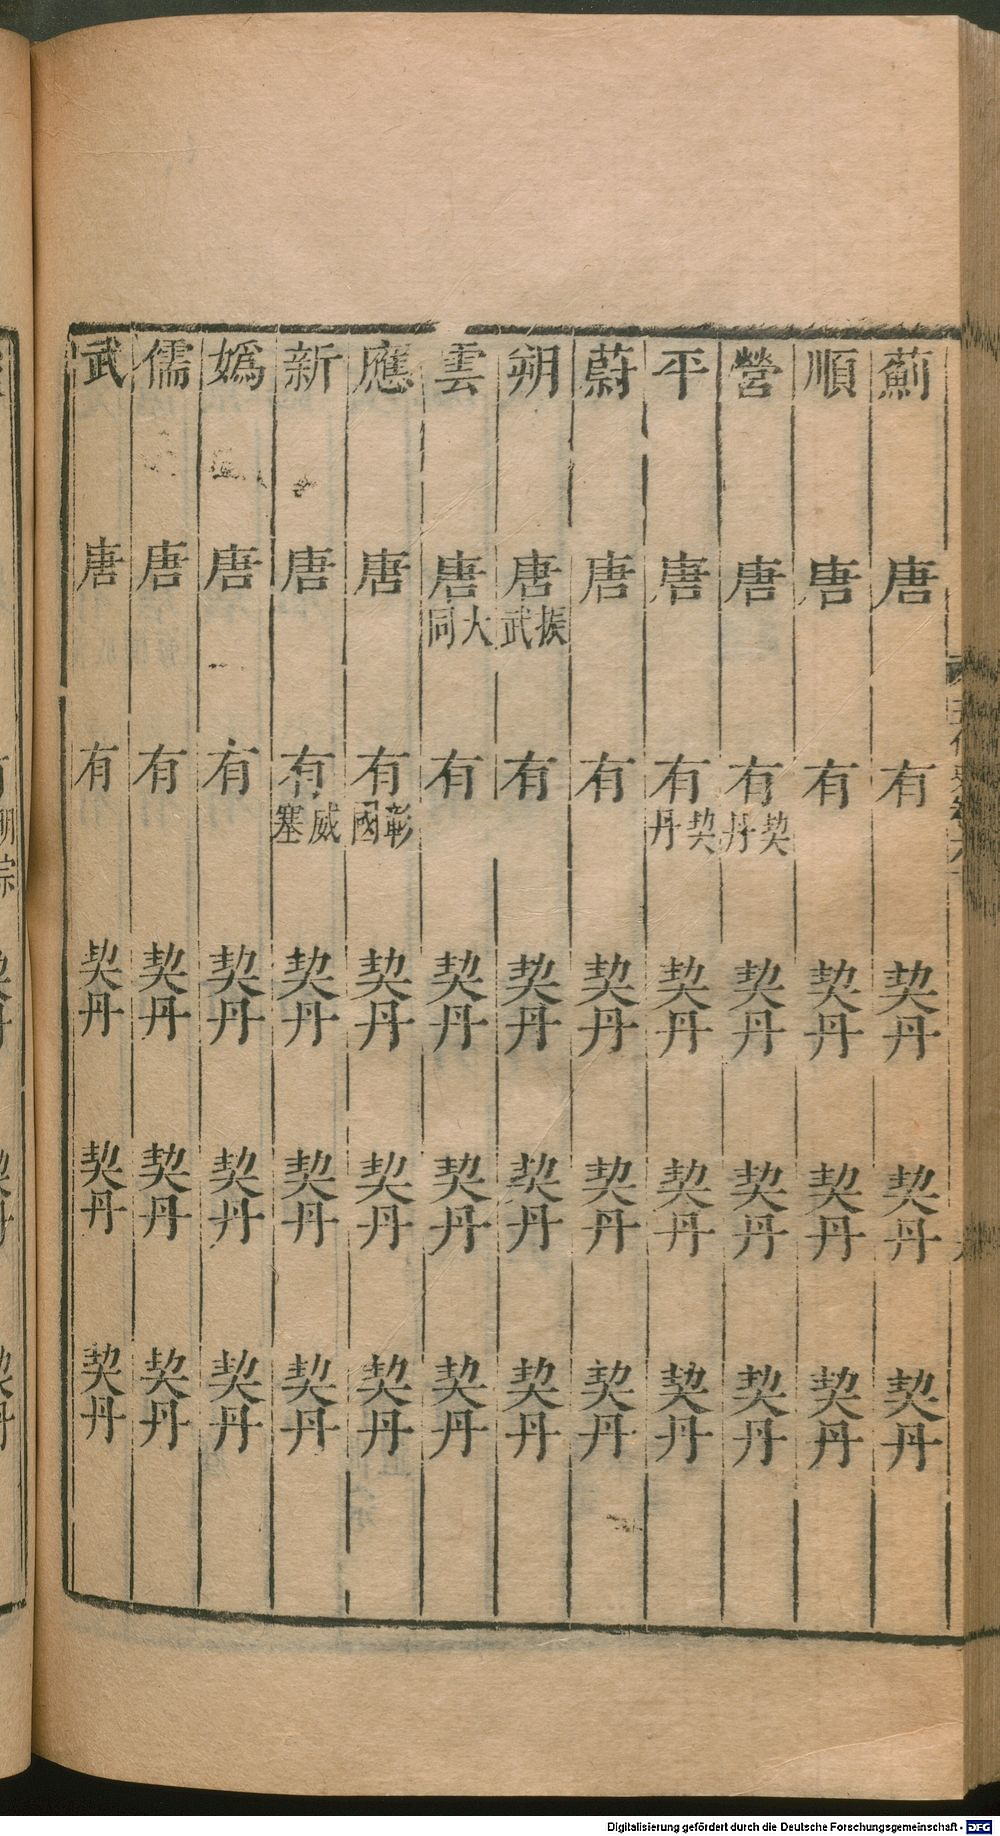 薊 唐 有 契丹 契丹 契丹
順 唐 有 契丹 契丹 契丹
營 唐 有契丹 契丹 契丹 契丹
平 唐 有契丹 契丹 契丹 契丹
蔚 唐 有 契丹 契丹 契丹
朔 唐振武 有 契丹 契丹 契丹
雲 唐大同 有 契丹 契丹 契丹
應 唐 有彰國 契丹 契丹 契丹
新 唐 有威塞 契丹 契丹 契丹
媯 唐 有 契丹 契丹 契丹
儒 唐 有 契丹 契丹 契丹
武 唐 有 契丹 契丹 契丹
明宗
Digitalisierung gefördert durch die Deutsche Forschungsgemeinschaft - DFG